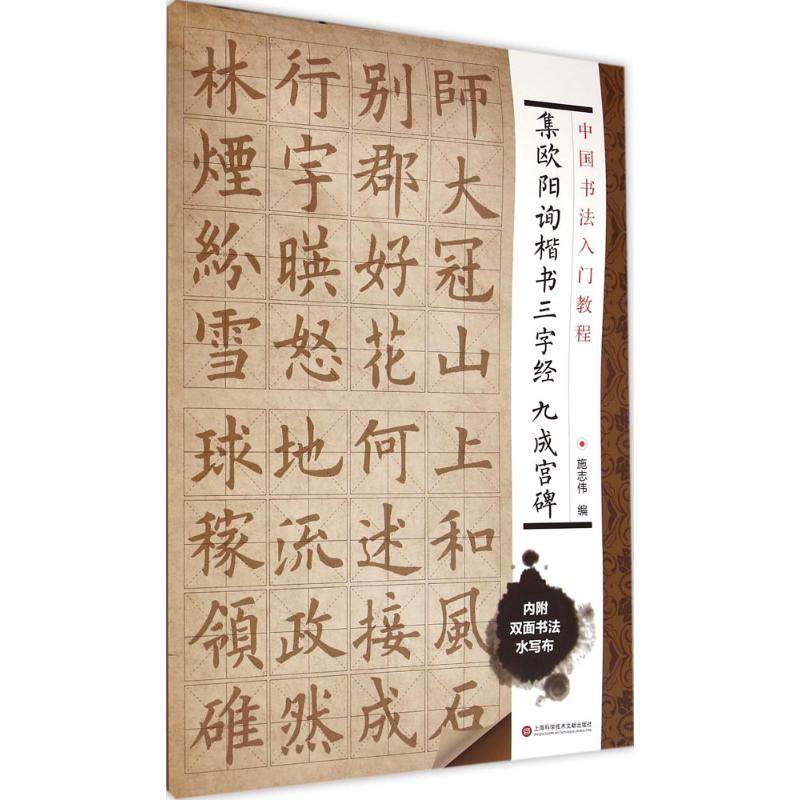 中国书法入门教程
集欧阳询楷书三字经 九成宫碑
施志伟 编
師大冠山
別郡好花
行宇暎怒
林煙紛雪
上和風石
何述接成
地流政然
球稼領碓
内附
双面书法
水写布
上海科学技术文献出版社